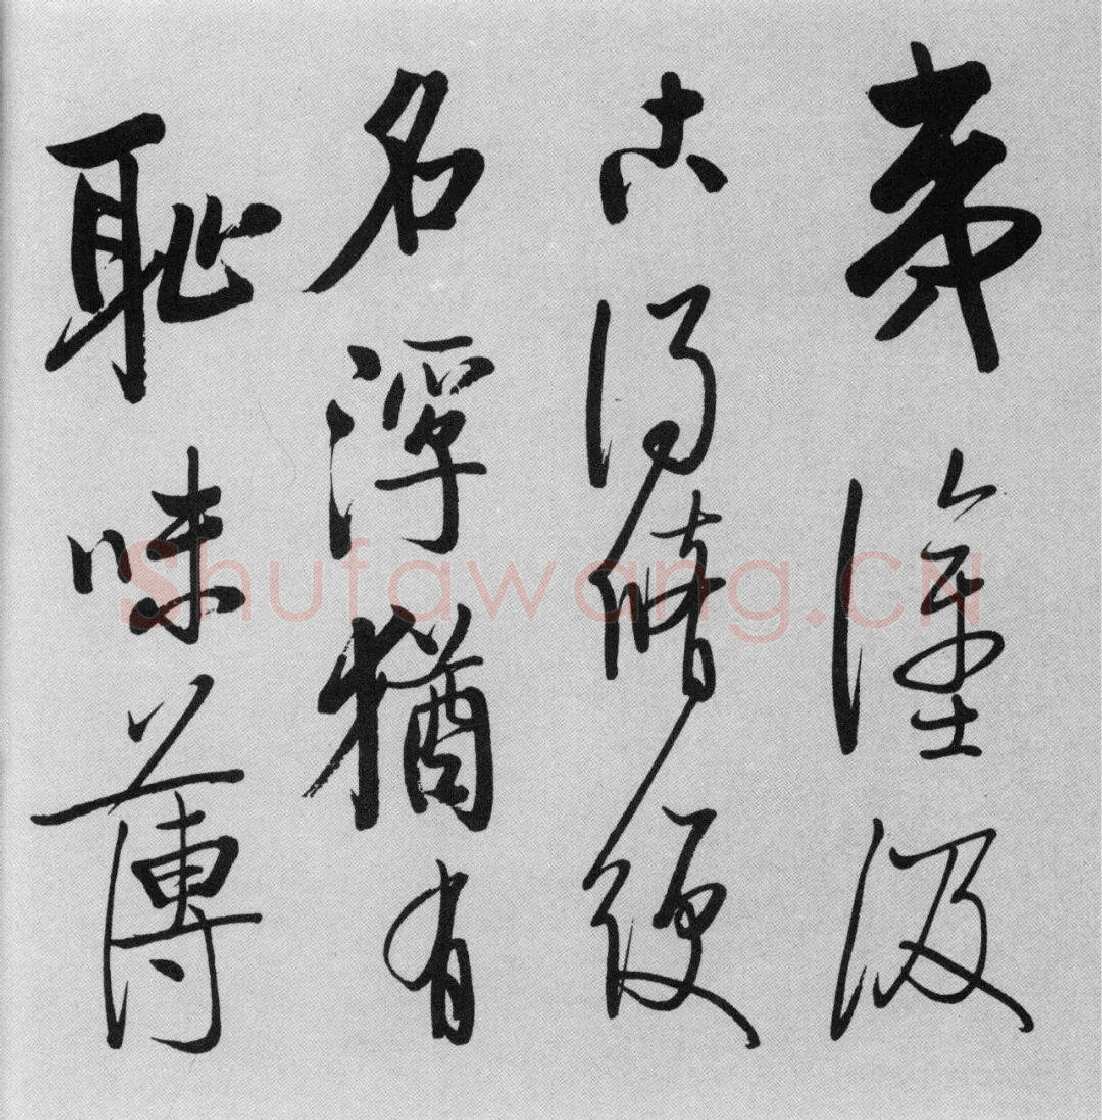 夷塗汲
古得脩綆
名浮猶有
恥味薄
Shufawang.CN